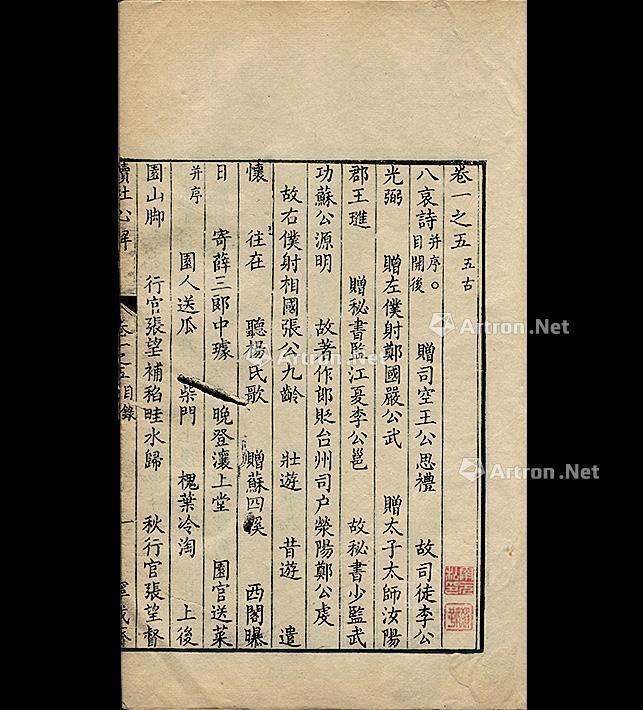 卷一之五 五古
八哀詩 并序○目開後 贈司空王公思禮 故司徒李公
光弼 贈左僕射鄭國嚴公武 贈太子太師汝陽
郡王璡 贈秘書監江夏李公邕 故秘書少監武
功蘇公源明 故著作郎貶台州司户滎陽鄭公虔
故右僕射相國張公九齡 壯遊 昔遊 遣
懷 往在 聽楊氏歌 贈蘇四徯 西閣曝
日 寄薛三郎中璩 晚登瀼上堂 園官送菜
并序 園人送瓜 柴門 槐葉冷淘 上後
園山脚 行官張望補稻畦水歸 秋行官張望督
讀杜心解 卷一之五目錄 一
Artron.Net
Artron.Net
Artron.Net
Artron.Net